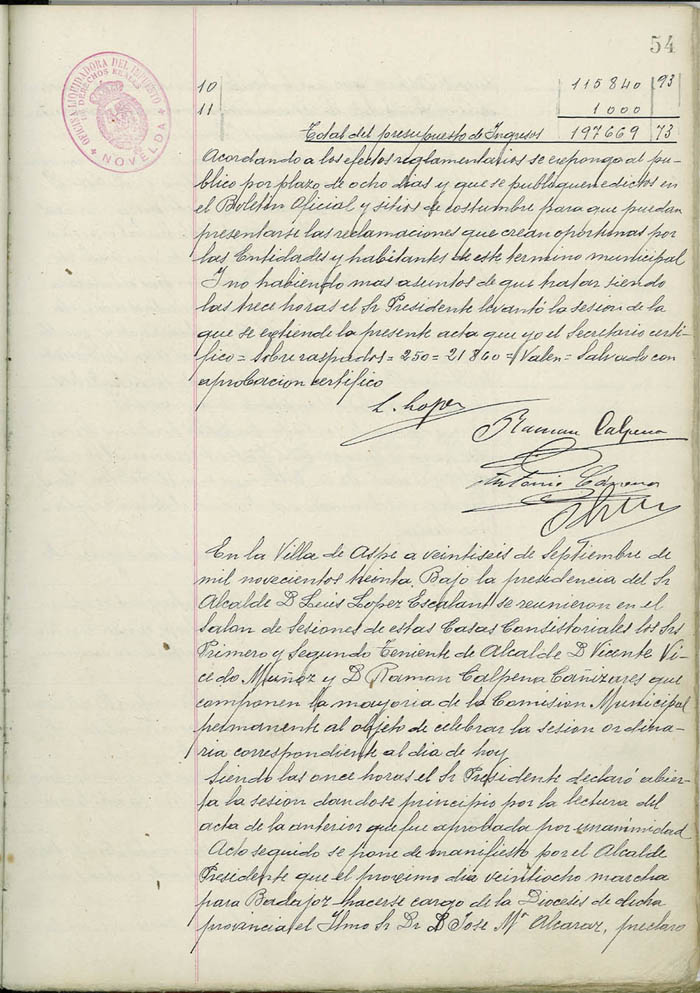 54
OFICINA LIQUIDADORA DEL IMPUESTO
DE DERECHOS REALES
NOVELDA
10 115840 93
11 1000
Total del presupuesto de Ingresos 197669 73
Acordando a los efectos reglamentarios se expongo al pu-
blico por plazo de ocho dias y que se publiquen edictos en
el Boletin Oficial y sitios de costumbre para que puedan
presentarse las reclamaciones que crean oportunas por
las Entidades y habitantes de este termino municipal
Y no habiendo mas asuntos de que tratar siendo
las trece horas el Sr Presidente levantó la sesion de la
que se extiende la presente acta que yo el Secretario certi-
fico = Sobre raspados = 250 = 21860 = Valen = Salvado con
aprobacion certifico
L. Lopez
Ramon Calpena
Antonio
En la Villa de Aspe a veintiseis de Septiembre de
mil novecientos treinta. Bajo la presidencia del Sr
Alcalde D Luis Lopez Escalant se reunieron en el
Salon de Sesiones de estas Casas Consistoriales los Srs
Primero y Segundo Teniente de Alcalde D Vicente Vi-
cedo Muñoz y D Ramon Calpena Cañizares que
componen la mayoria de la Comision Municipal
permanente al objeto de celebrar la sesion ordina-
ria correspondiente al dia de hoy
Siendo las once horas el Sr Presidente declaró abier-
ta la sesion dandose principio por la lectura del
acta de la anterior que fue aprobada por unanimidad
Acto seguido se pone de manifiesto por el Alcalde
Presidente que el proximo dia veintiocho marcha
para Badajoz hacerse cargo de la Diocesis de dicha
provincia el Ilmo Sr Dr D Jose Mª Alcaraz, preclaro